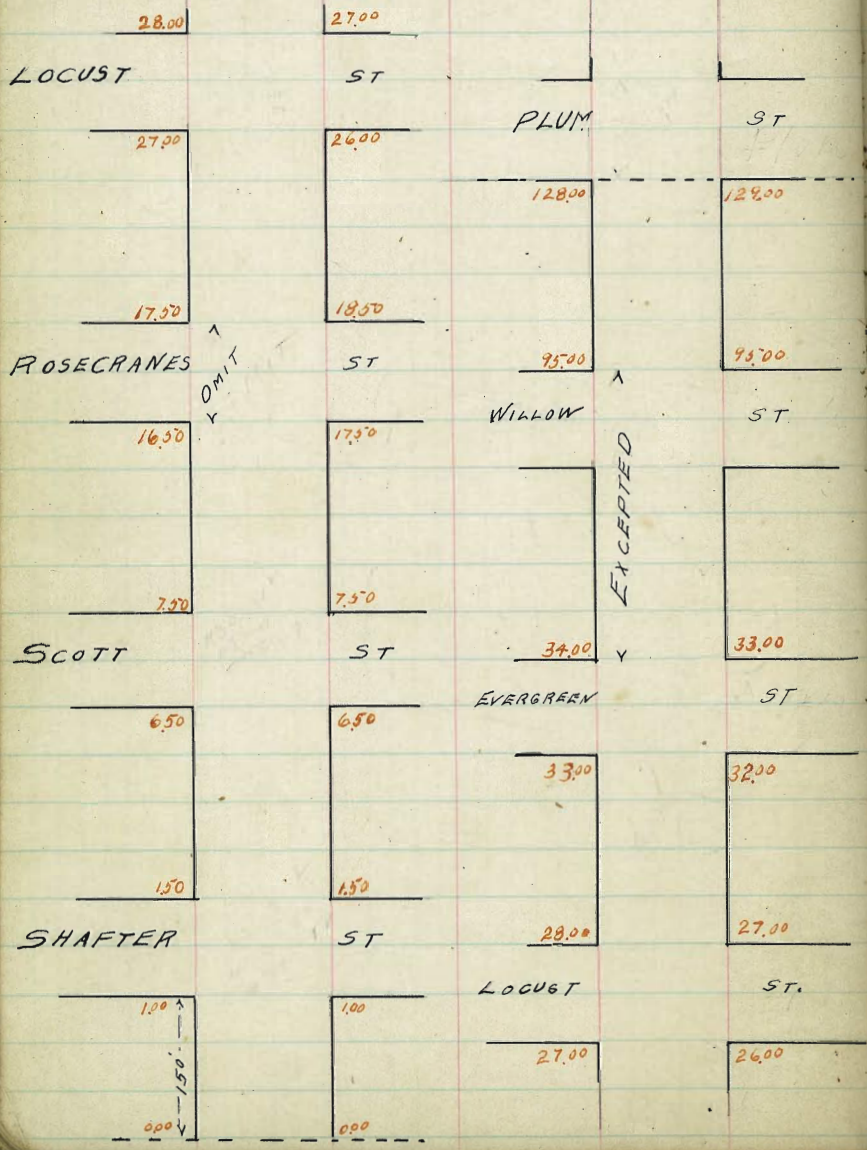 28.00 27.00
LOCUST ST
27.00 26.00
17.50 18.50
ROSECRANES ST
OMIT
16.50 17.50
7.50 7.50
SCOTT ST
6.50 6.50
1.50 1.50
SHAFTER ST
1.00 1.00
150'
0.00 0.00
PLUM ST
128.00 129.00
95.00 95.00
WILLOW ST
EXCEPTED
34.00 33.00
EVERGREEN ST
33.00 32.00
28.00 27.00
LOCUST ST.
27.00 26.00